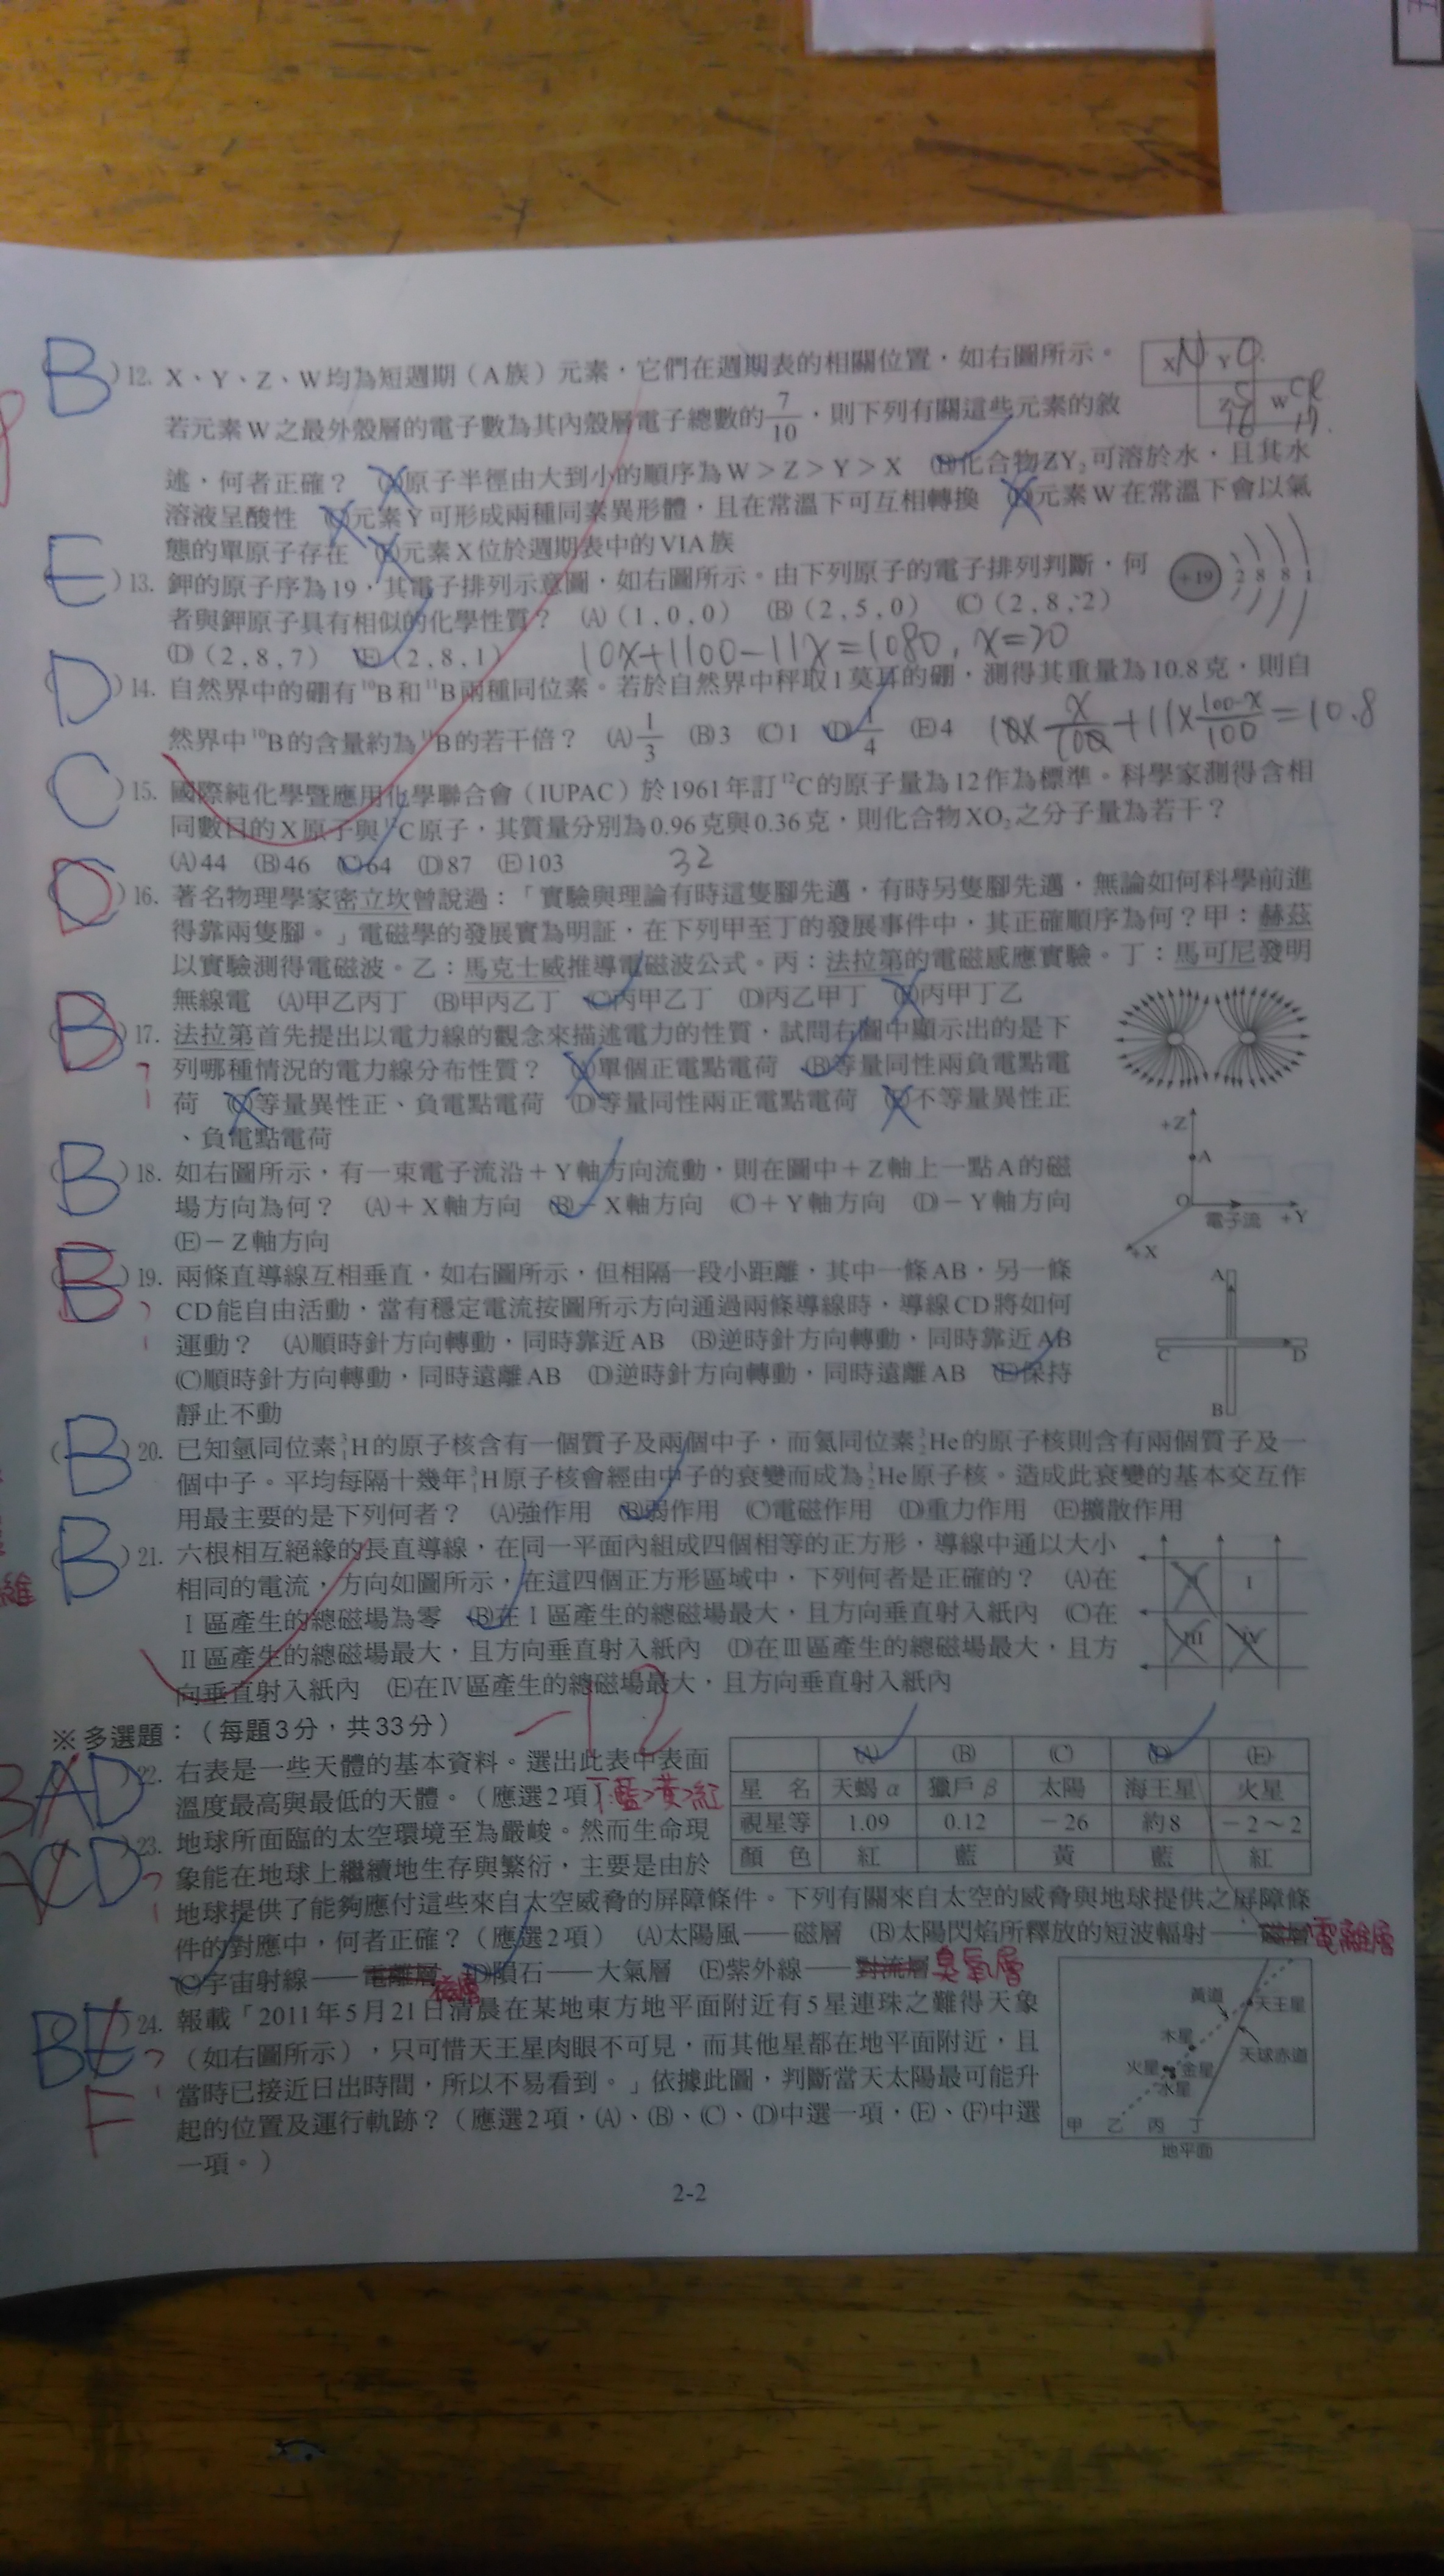 B )12. X、Y、Z、W均為短週期(A族)元素,它們在週期表的相關位置,如右圖所示。
X N Y O
Z S 16 W Cl 17
若元素W之最外殼層的電子數為其內殼層電子總數的 7/10,則下列有關這些元素的敘
述,何者正確? (A)原子半徑由大到小的順序為W>Z>Y>X (B)化合物ZY₂可溶於水,且其水
溶液呈酸性 (C)元素Y可形成兩種同素異形體,且在常溫下可互相轉換 (D)元素W在常溫下會以氣
態的單原子存在 (E)元素X位於週期表中的VIA族
E )13. 鉀的原子序為19,其電子排列示意圖,如右圖所示。由下列原子的電子排列判斷,何
+19 2 8 8 1
者與鉀原子具有相似的化學性質? (A)(1,0,0) (B)(2,5,0) (C)(2,8,2)
(D)(2,8,7) (E)(2,8,1) 10x+1100-11x=1080, x=20
D )14. 自然界中的硼有¹⁰B和¹¹B兩種同位素。若於自然界中秤取1莫耳的硼,測得其重量為10.8克,則自
然界中¹⁰B的含量約為¹¹B的若干倍? (A)1/3 (B)3 (C)1 (D)1/4 (E)4 10× x/100 +11× 100-x/100 =10.8
C )15. 國際純化學暨應用化學聯合會(IUPAC)於1961年訂¹²C的原子量為12作為標準。科學家測得含相
同數目的X原子與¹²C原子,其質量分別為0.96克與0.36克,則化合物XO₂之分子量為若干?
(A)44 (B)46 (C)64 (D)87 (E)103 32
)16. 著名物理學家密立坎曾說過:「實驗與理論有時這隻腳先邁,有時另隻腳先邁,無論如何科學前進
得靠兩隻腳。」電磁學的發展實為明証,在下列甲至丁的發展事件中,其正確順序為何?甲:赫茲
以實驗測得電磁波。乙:馬克士威推導電磁波公式。丙:法拉第的電磁感應實驗。丁:馬可尼發明
無線電 (A)甲乙丙丁 (B)甲丙乙丁 (C)丙甲乙丁 (D)丙乙甲丁 (E)丙甲丁乙
)17. 法拉第首先提出以電力線的觀念來描述電力的性質,試問右圖中顯示出的是下
列哪種情況的電力線分布性質? (A)單個正電點電荷 (B)等量同性兩負電點電
荷 (C)等量異性正、負電點電荷 (D)等量同性兩正電點電荷 (E)不等量異性正
、負電點電荷
B )18. 如右圖所示,有一束電子流沿+Y軸方向流動,則在圖中+Z軸上一點A的磁
場方向為何? (A)+X軸方向 (B)-X軸方向 (C)+Y軸方向 (D)-Y軸方向
(E)-Z軸方向
+Z
A
O
電子流 +Y
+X
B )19. 兩條直導線互相垂直,如右圖所示,但相隔一段小距離,其中一條AB,另一條
CD能自由活動,當有穩定電流按圖所示方向通過兩條導線時,導線CD將如何
運動? (A)順時針方向轉動,同時靠近AB (B)逆時針方向轉動,同時靠近AB
(C)順時針方向轉動,同時遠離AB (D)逆時針方向轉動,同時遠離AB (E)保持
靜止不動
A
C D
B
( B )20. 已知氫同位素³₁H的原子核含有一個質子及兩個中子,而氦同位素³₂He的原子核則含有兩個質子及一
個中子。平均每隔十幾年³₁H原子核會經由中子的衰變而成為³₂He原子核。造成此衰變的基本交互作
用最主要的是下列何者? (A)強作用 (B)弱作用 (C)電磁作用 (D)重力作用 (E)擴散作用
( B )21. 六根相互絕緣的長直導線,在同一平面內組成四個相等的正方形,導線中通以大小
相同的電流,方向如圖所示,在這四個正方形區域中,下列何者是正確的? (A)在
I區產生的總磁場為零 (B)在I區產生的總磁場最大,且方向垂直射入紙內 (C)在
II區產生的總磁場最大,且方向垂直射入紙內 (D)在III區產生的總磁場最大,且方
向垂直射入紙內 (E)在IV區產生的總磁場最大,且方向垂直射入紙內
II I
III IV
-12
※多選題:(每題3分,共33分)
BAD )22. 右表是一些天體的基本資料。選出此表中表面
溫度最高與最低的天體。(應選2項) 藍>黃>紅
(A) (B) (C) (D) (E)
星 名 天蠍α 獵戶β 太陽 海王星 火星
視星等 1.09 0.12 -26 約8 -2~2
顏 色 紅 藍 黃 藍 紅
ACD )23. 地球所面臨的太空環境至為嚴峻。然而生命現
象能在地球上繼續地生存與繁衍,主要是由於
地球提供了能夠應付這些來自太空威脅的屏障條件。下列有關來自太空的威脅與地球提供之屏障條
件的對應中,何者正確?(應選2項) (A)太陽風——磁層 (B)太陽閃焰所釋放的短波輻射——磁層 電離層
(C)宇宙射線——電離層 磁層 (D)隕石——大氣層 (E)紫外線——對流層 臭氧層
BE F )24. 報載「2011年5月21日清晨在某地東方地平面附近有5星連珠之難得天象
(如右圖所示),只可惜天王星肉眼不可見,而其他星都在地平面附近,且
當時已接近日出時間,所以不易看到。」依據此圖,判斷當天太陽最可能升
起的位置及運行軌跡?(應選2項,(A)、(B)、(C)、(D)中選一項,(E)、(F)中選
一項。)
黃道 天王星
木星
天球赤道
火星 金星
水星
甲 乙 丙 丁
地平面
2-2